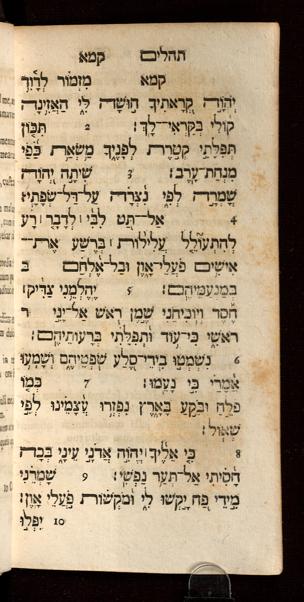 תהלים קמא
קמא מזמור לדוד
יהוה קראתיך חושה לי האזינה
קולי בקראי־לך׃ 2 תכון
תפלתי קטרת לפניך משאת כפי
מנחת־ערב׃ 3 שיתה יהוה
שמרה לפי נצרה על־דל־שפתי׃
4 אל־תט לבי ׀ לדבר ׀ רע
להתעולל עללות ׀ ברשע את־
אישים פעלי־און ובל־אלחם ב
במנעמיהם׃ 5 יהלמני צדיק ׀
חסד ויוכיחני שמן ראש אל־יני ר
ראשי כי־עוד ותפלתי ברעותיהם׃
6 נשמטו בידי־סלע שפטיהם ושמעו
אמרי כי נעמו׃ 7 כמו
פלח ובקע בארץ נפזרו עצמינו לפי
שאול׃
8 כי אליך ׀ יהוה אדני עיני בכה
חסיתי אל־תער נפשי׃ 9 שמרני
מידי פח יקשו לי ומקשות פעלי און׃
10 יפלו